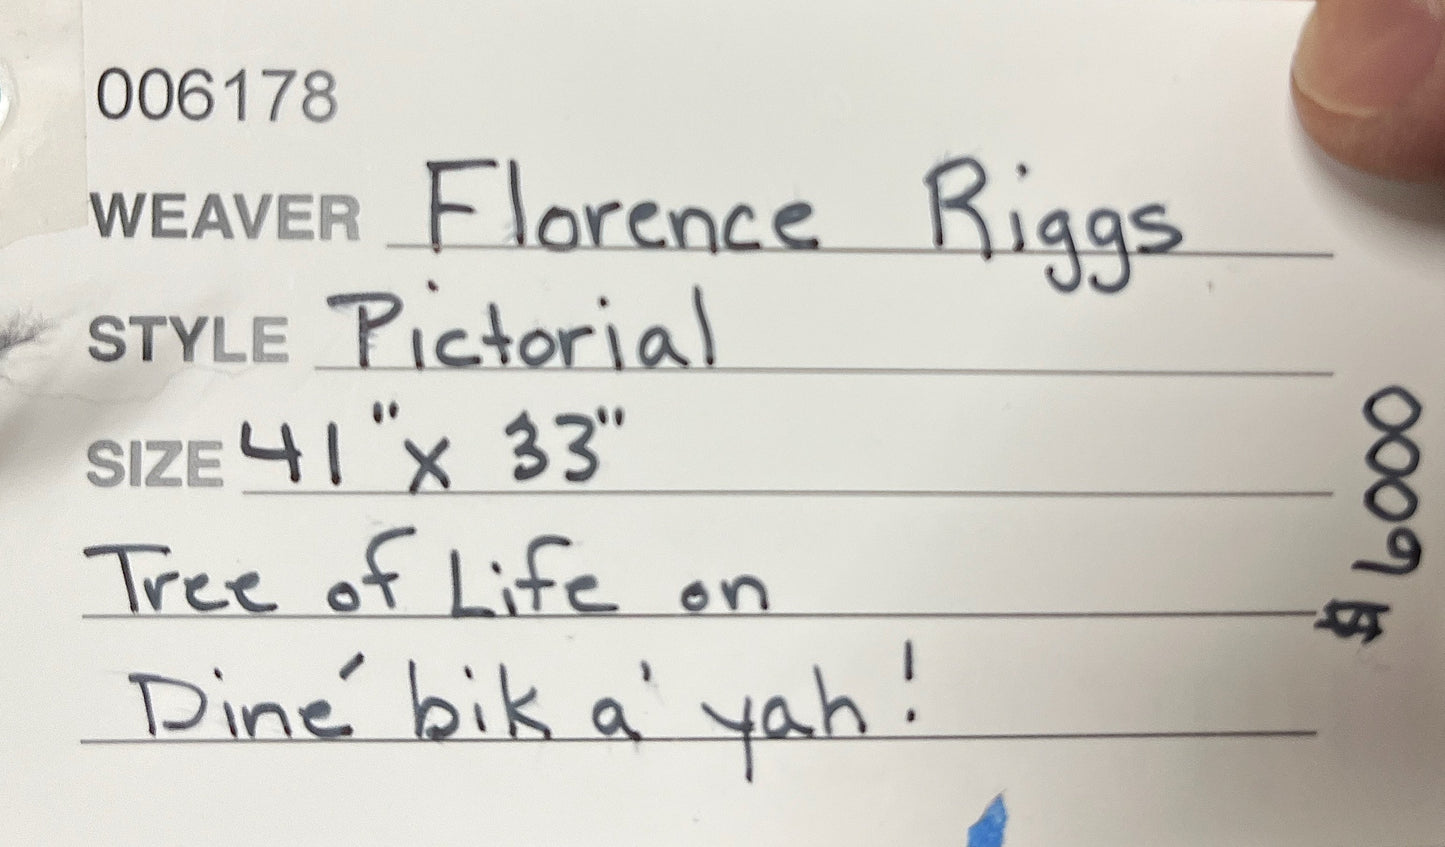 006178
WEAVER Florence Riggs
STYLE Pictorial
SIZE 41" x 33"
Tree of Life on
Diné bik a' yah!
$6000